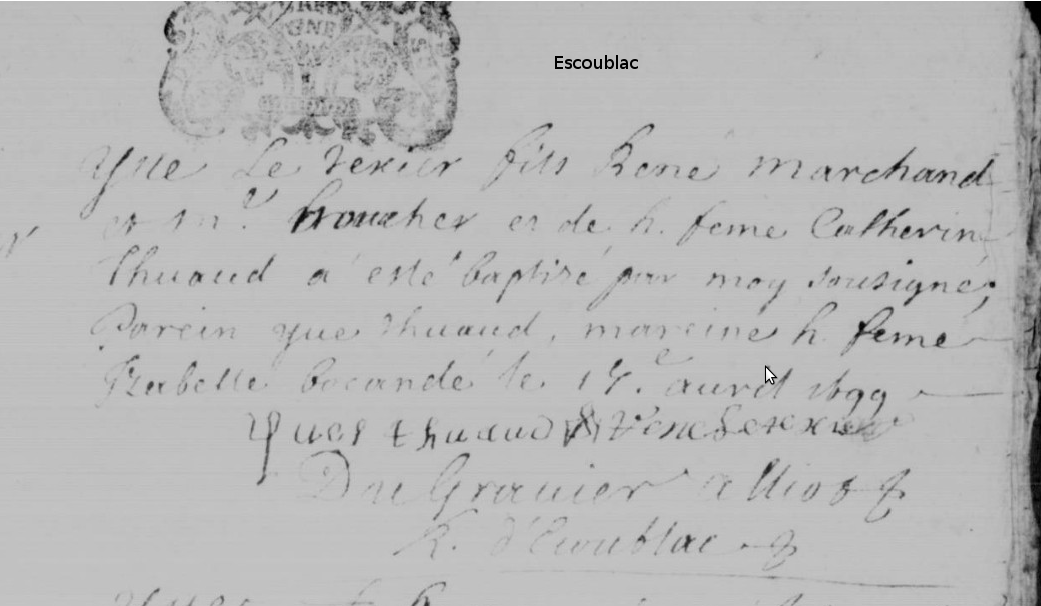 Escoublac
Le Texier fils René Marchand
et m.e et de h. feme Catherin
Thuaud a esté baptizé par moy sousigné;
Parein yue Thuaud, mareine h. feme
Izabelle bocandé le 17.e auril 1699
yues thuaud
Du Grauier alliot
R. d'Escoublac